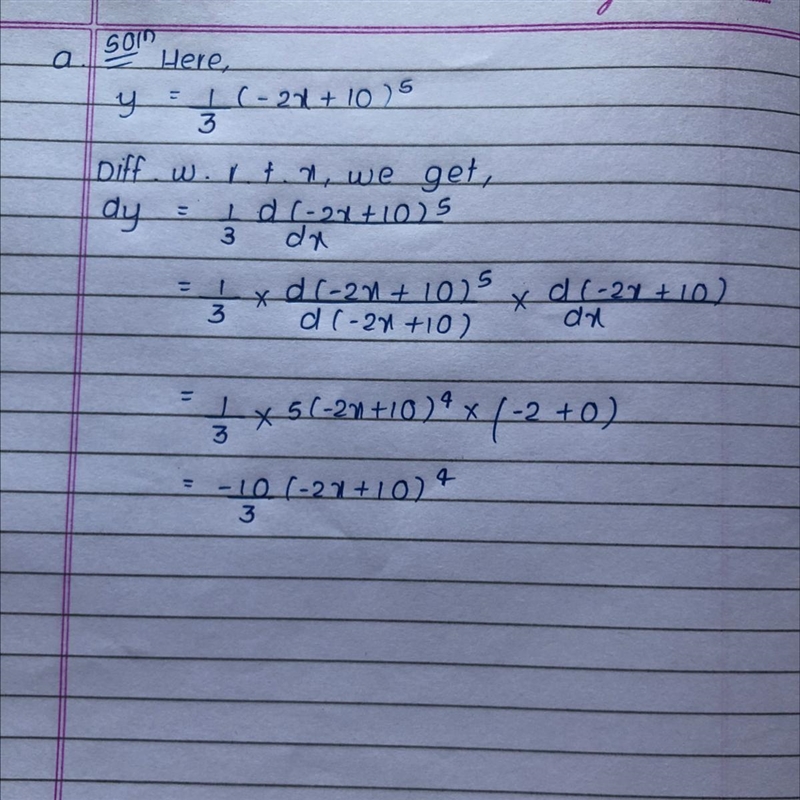 a. Soln Here,
y = 1/3 (-2x + 10)^5
Diff. w. r. t. x, we get,
dy = 1/3 d(-2x+10)^5/dx
= 1/3 × d(-2x + 10)^5/d(-2x+10) × d(-2x+10)/dx
= 1/3 × 5(-2x+10)^4 × (-2 + 0)
= -10/3 (-2x+10)^4